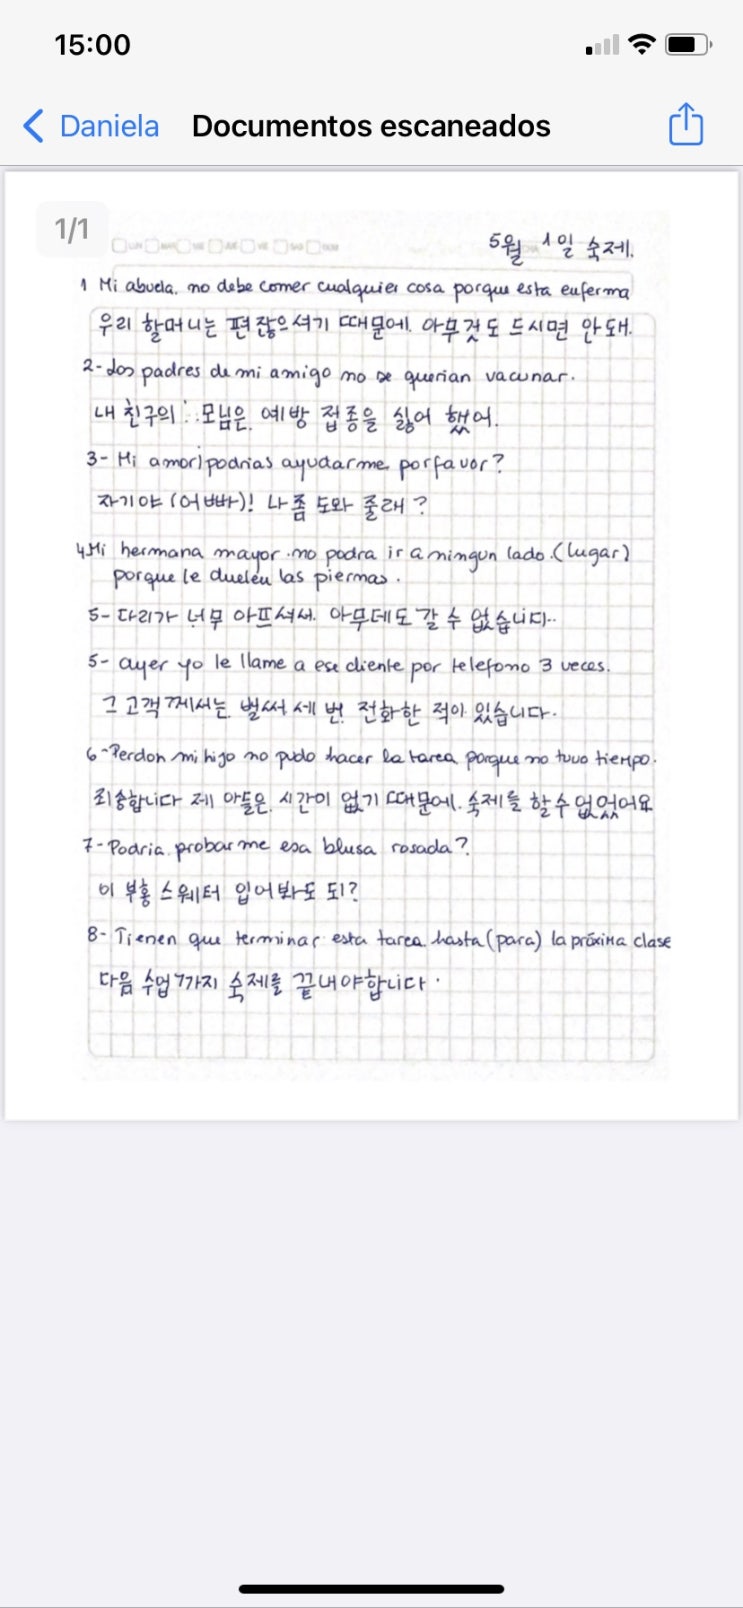 15:00
Daniela
Documentos escaneados
1/1
LUN MAR MIE JUE VIE SAB DOM
5월 1일 숙제.
1 Mi abuela. no debe comer cualquier cosa porque esta enferma
우리 할머니는 편찮으셔기 때문에. 아무것도 드시면 안돼.
2-Los padres de mi amigo no se querian vacunar.
내 친구의 모님은. 예방 접종을 싫어 했어.
3- Mi amor! podrias ayudarme porfavor?
자기야 (어빠)! 나 좀 도와 줄래?
4Mi hermana mayor.no podra ir a ningun lado.(lugar)
porque le duelen las piernas.
5- 다리가 너무 아프셔서. 아무데도 갈 수 없습니다..
5- ayer yo le llame a ese cliente por telefono 3 veces.
그 고객께서는. 벌써 세 번. 전화한 적이 있습니다.
6-Perdon mi hijo no pudo hacer la tarea porque no tuvo tiempo.
죄송합니다 제 아들은. 시간이 없기 때문에. 숙제를 할 수 없었어요
7-Podria probarme esa blusa rosada?
이 부홍 스웨터 입어봐도 되?
8- Tienen que terminar esta tarea hasta (para) la próxima clase
다음 수업까지 숙제를 끝내야합니다.